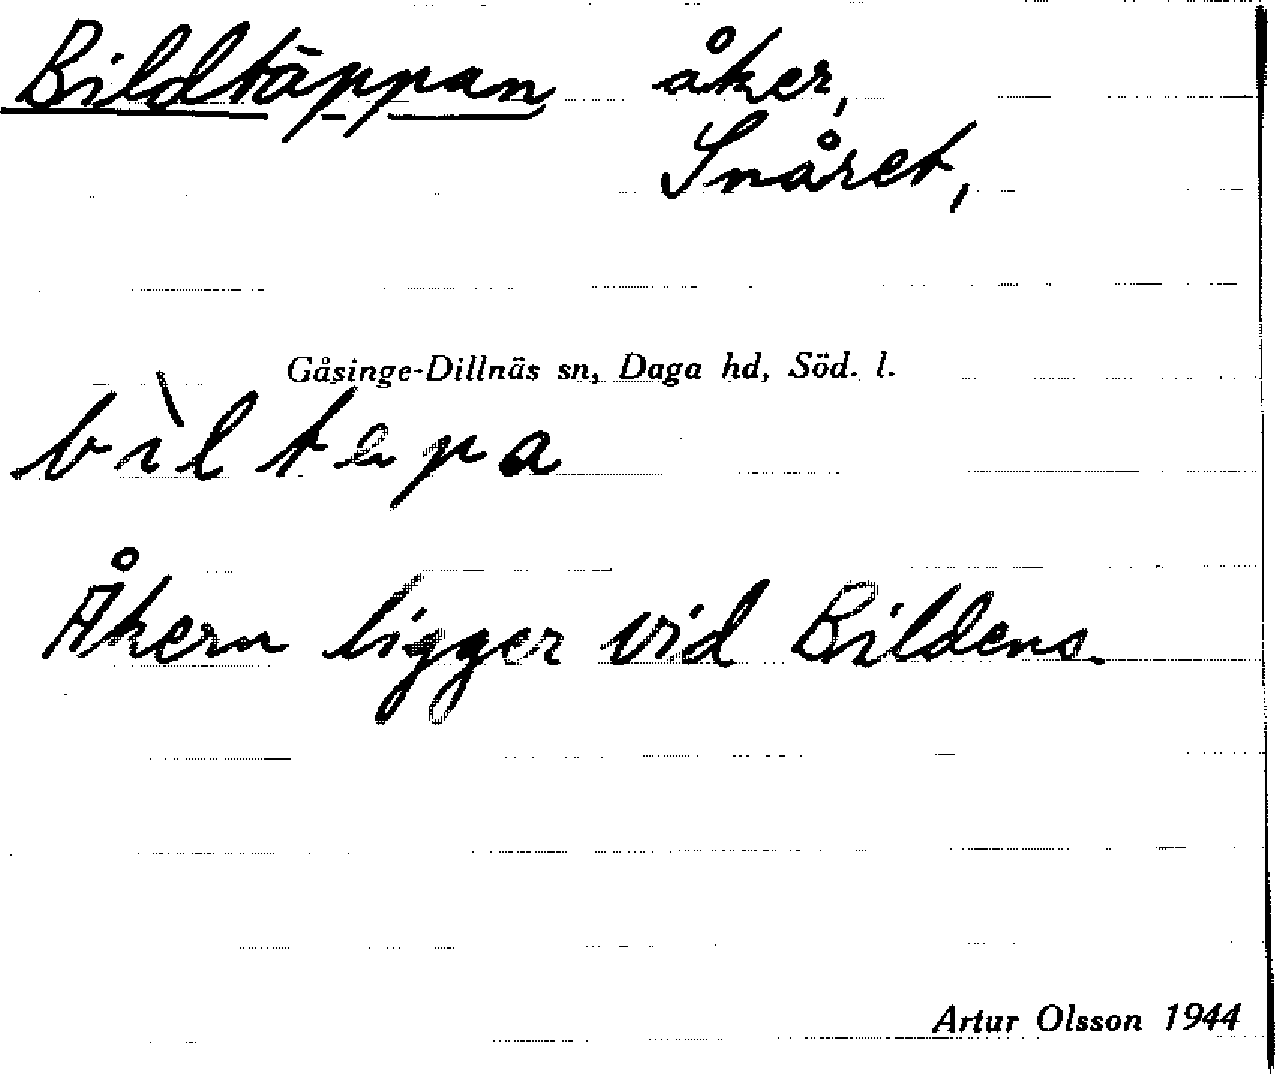 Bildtäppan åker,
Snåret,
Gåsinge-Dillnäs sn, Daga hd, Söd. l.
Åkern ligger vid Bildens.
Artur Olsson 1944